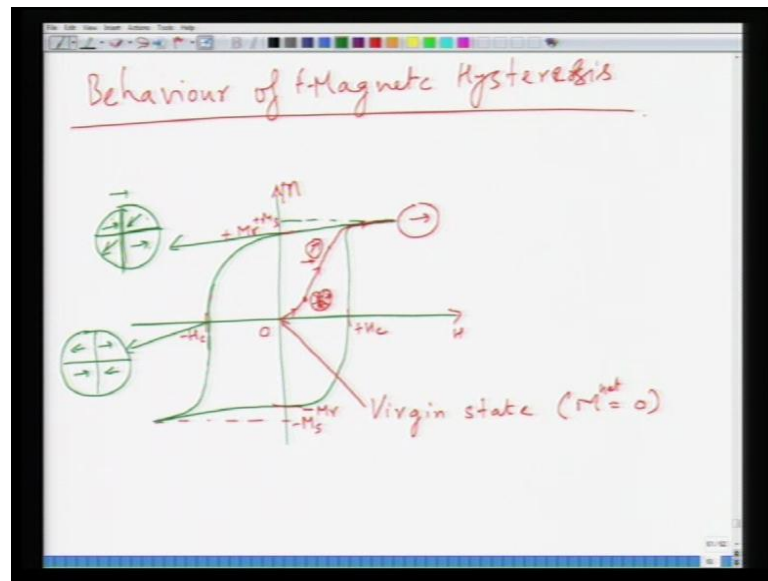 File Edit View Insert Actions Tools Help
Behaviour of f-Magnetc Hysteresis
M
+Ms
+Mr
-Hc
O
+Hc
H
-Mr
-Ms
Virgin state (M net = 0)